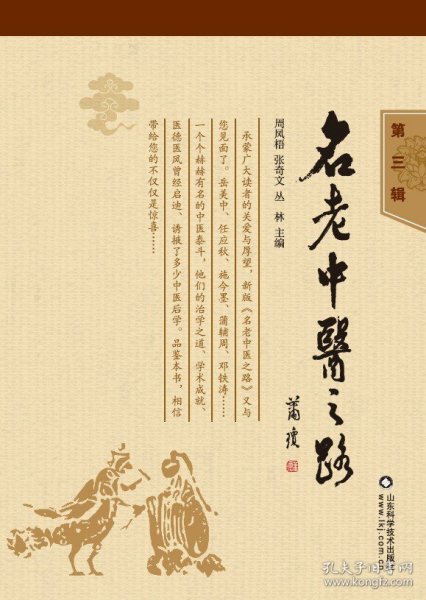 第三辑
名老中醫之路
萧琼
周凤梧 张奇文 丛 林 主编
承蒙广大读者的关爱与厚望，新版《名老中医之路》又与
您见面了。岳美中、任应秋、施今墨、蒲辅周、邓铁涛……
一个个赫赫有名的中医泰斗，他们的治学之道、学术成就、
医德医风曾经启迪、诱掖了多少中医后学。品鉴本书，相信
带给您的不仅仅是惊喜……
山东科学技术出版社
www.lkj.com.cn
孔夫子旧书网
www.kongfz.com